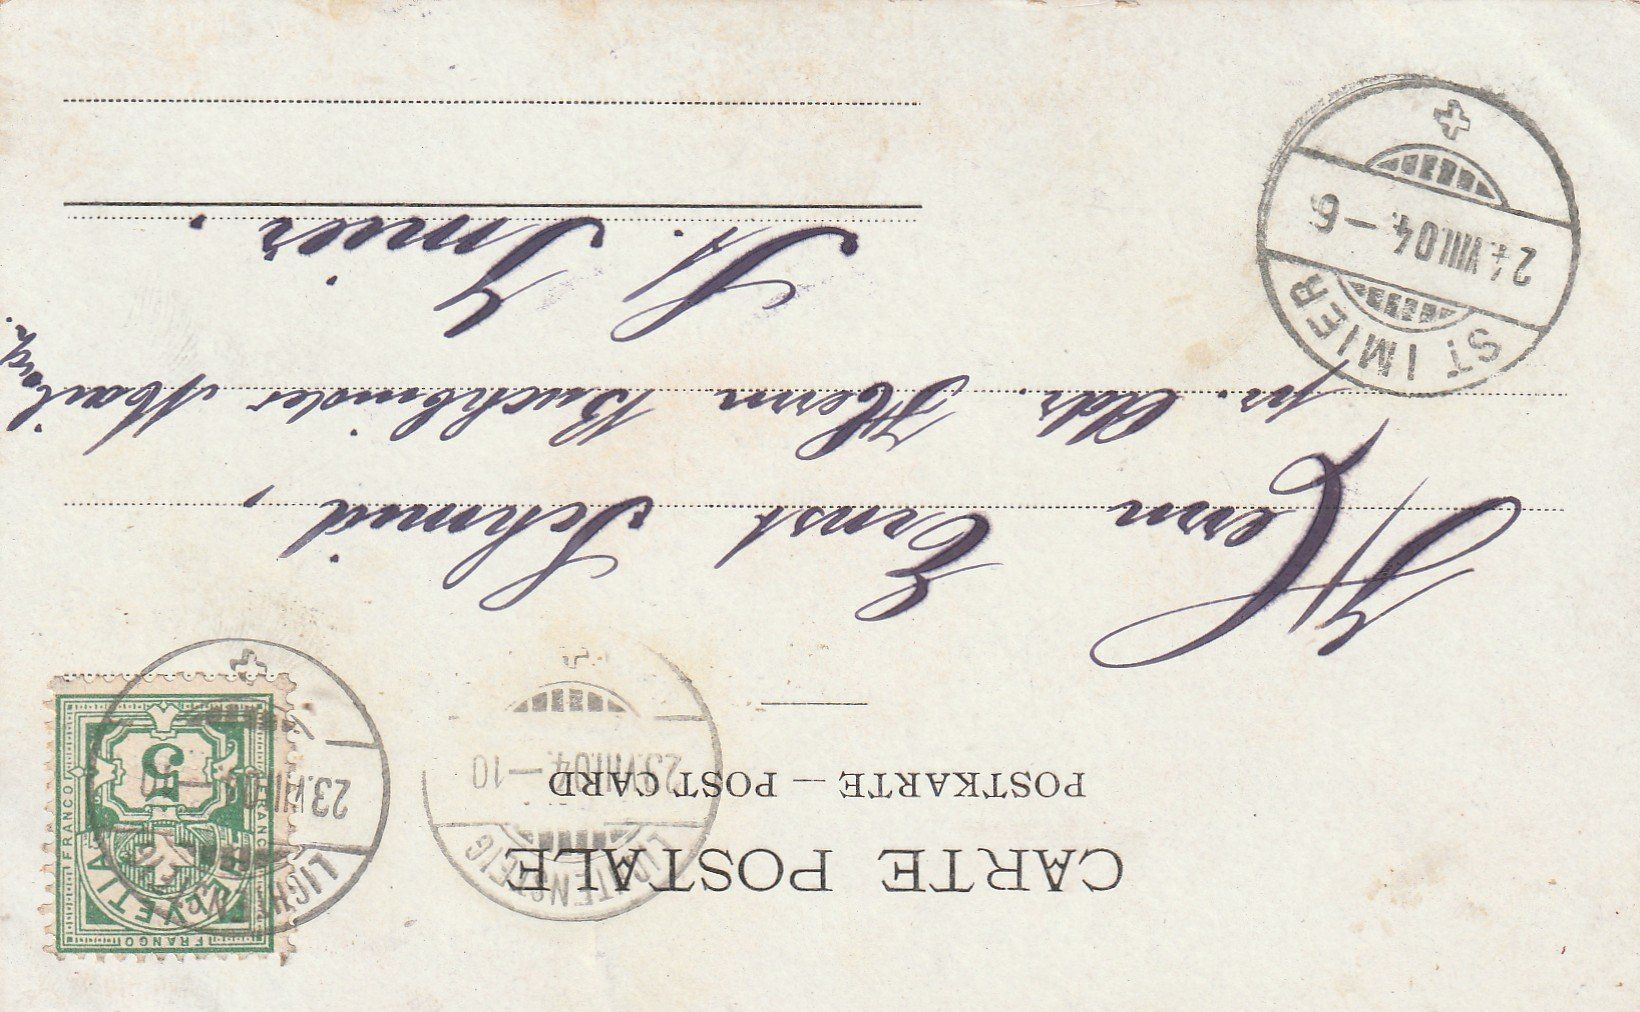 CARTE POSTALE
POSTKARTE — POST CARD
LICHTENSTEIG
23.VIII.04.—10
LICHTENSTEIG
23.VIII.04.—10
FRANCO
HELVETIA
FRANCO
FRANCO
5
Herrn Ernst Schmid,
pr. Adr. Herrn Buchbinder
St. Imier.
ST IMIER
24.VIII.04.—6